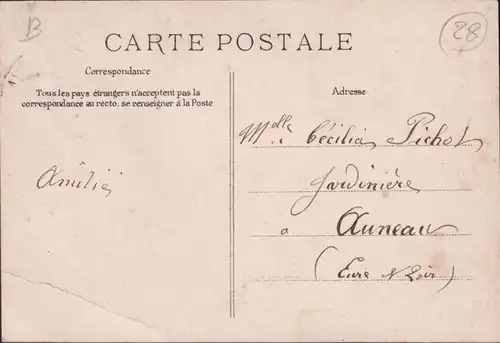 B
28
CARTE POSTALE
Correspondance
Tous les pays étrangers n'acceptent pas la
correspondance au recto. se renseigner à la Poste
Amélie
Adresse
Mdlle Cécilia Pichot
Jardinière
a Auneau
(Eure & Loir)